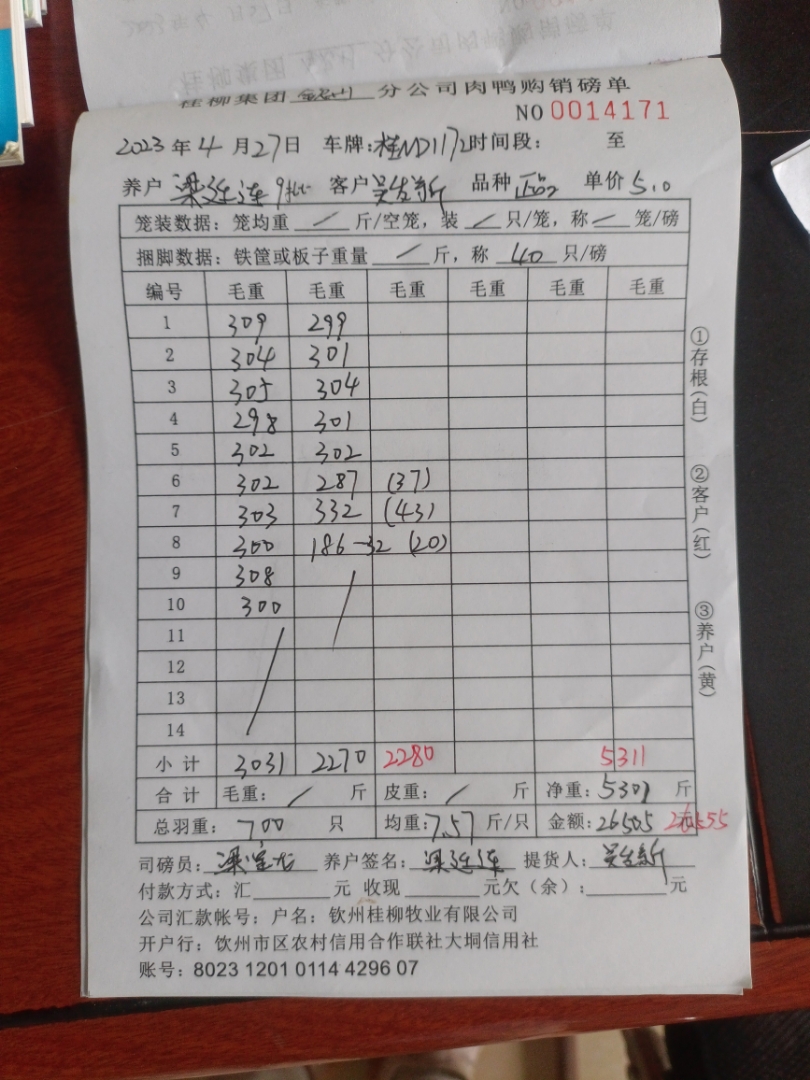 桂柳集团 钦州 分公司肉鸭购销磅单
NO 0014171
2023 年 4 月 27 日 车牌: 桂ND1172 时间段: 至
养户 梁廷连 9批 客户 吴发新 品种 正品 单价 5.0
笼装数据: 笼均重 / 斤/空笼, 装 / 只/笼, 称 / 笼/磅
捆脚数据: 铁筐或板子重量 / 斤, 称 40 只/磅
编号 毛重 毛重 毛重 毛重 毛重 毛重
1 309 299
2 304 301
3 305 304
4 298 301
5 302 302
6 302 287 (37)
7 303 332 (43)
8 300 186-32 (20)
9 308
10 300
11
12
13
14
小计 3031 2270 2280 5311
合计 毛重: / 斤 皮重: / 斤 净重: 5301 斤
总羽重: 700 只 均重: 7.57 斤/只 金额: 26505 26555
司磅员: 养户签名: 梁廷连 提货人: 吴发新
付款方式: 汇 元 收现 元欠(余): 元
公司汇款帐号: 户名: 钦州桂柳牧业有限公司
开户行: 钦州市区农村信用合作联社大垌信用社
账号: 8023 1201 0114 4296 07
①存根(白)
②客户(红)
③养户(黄)